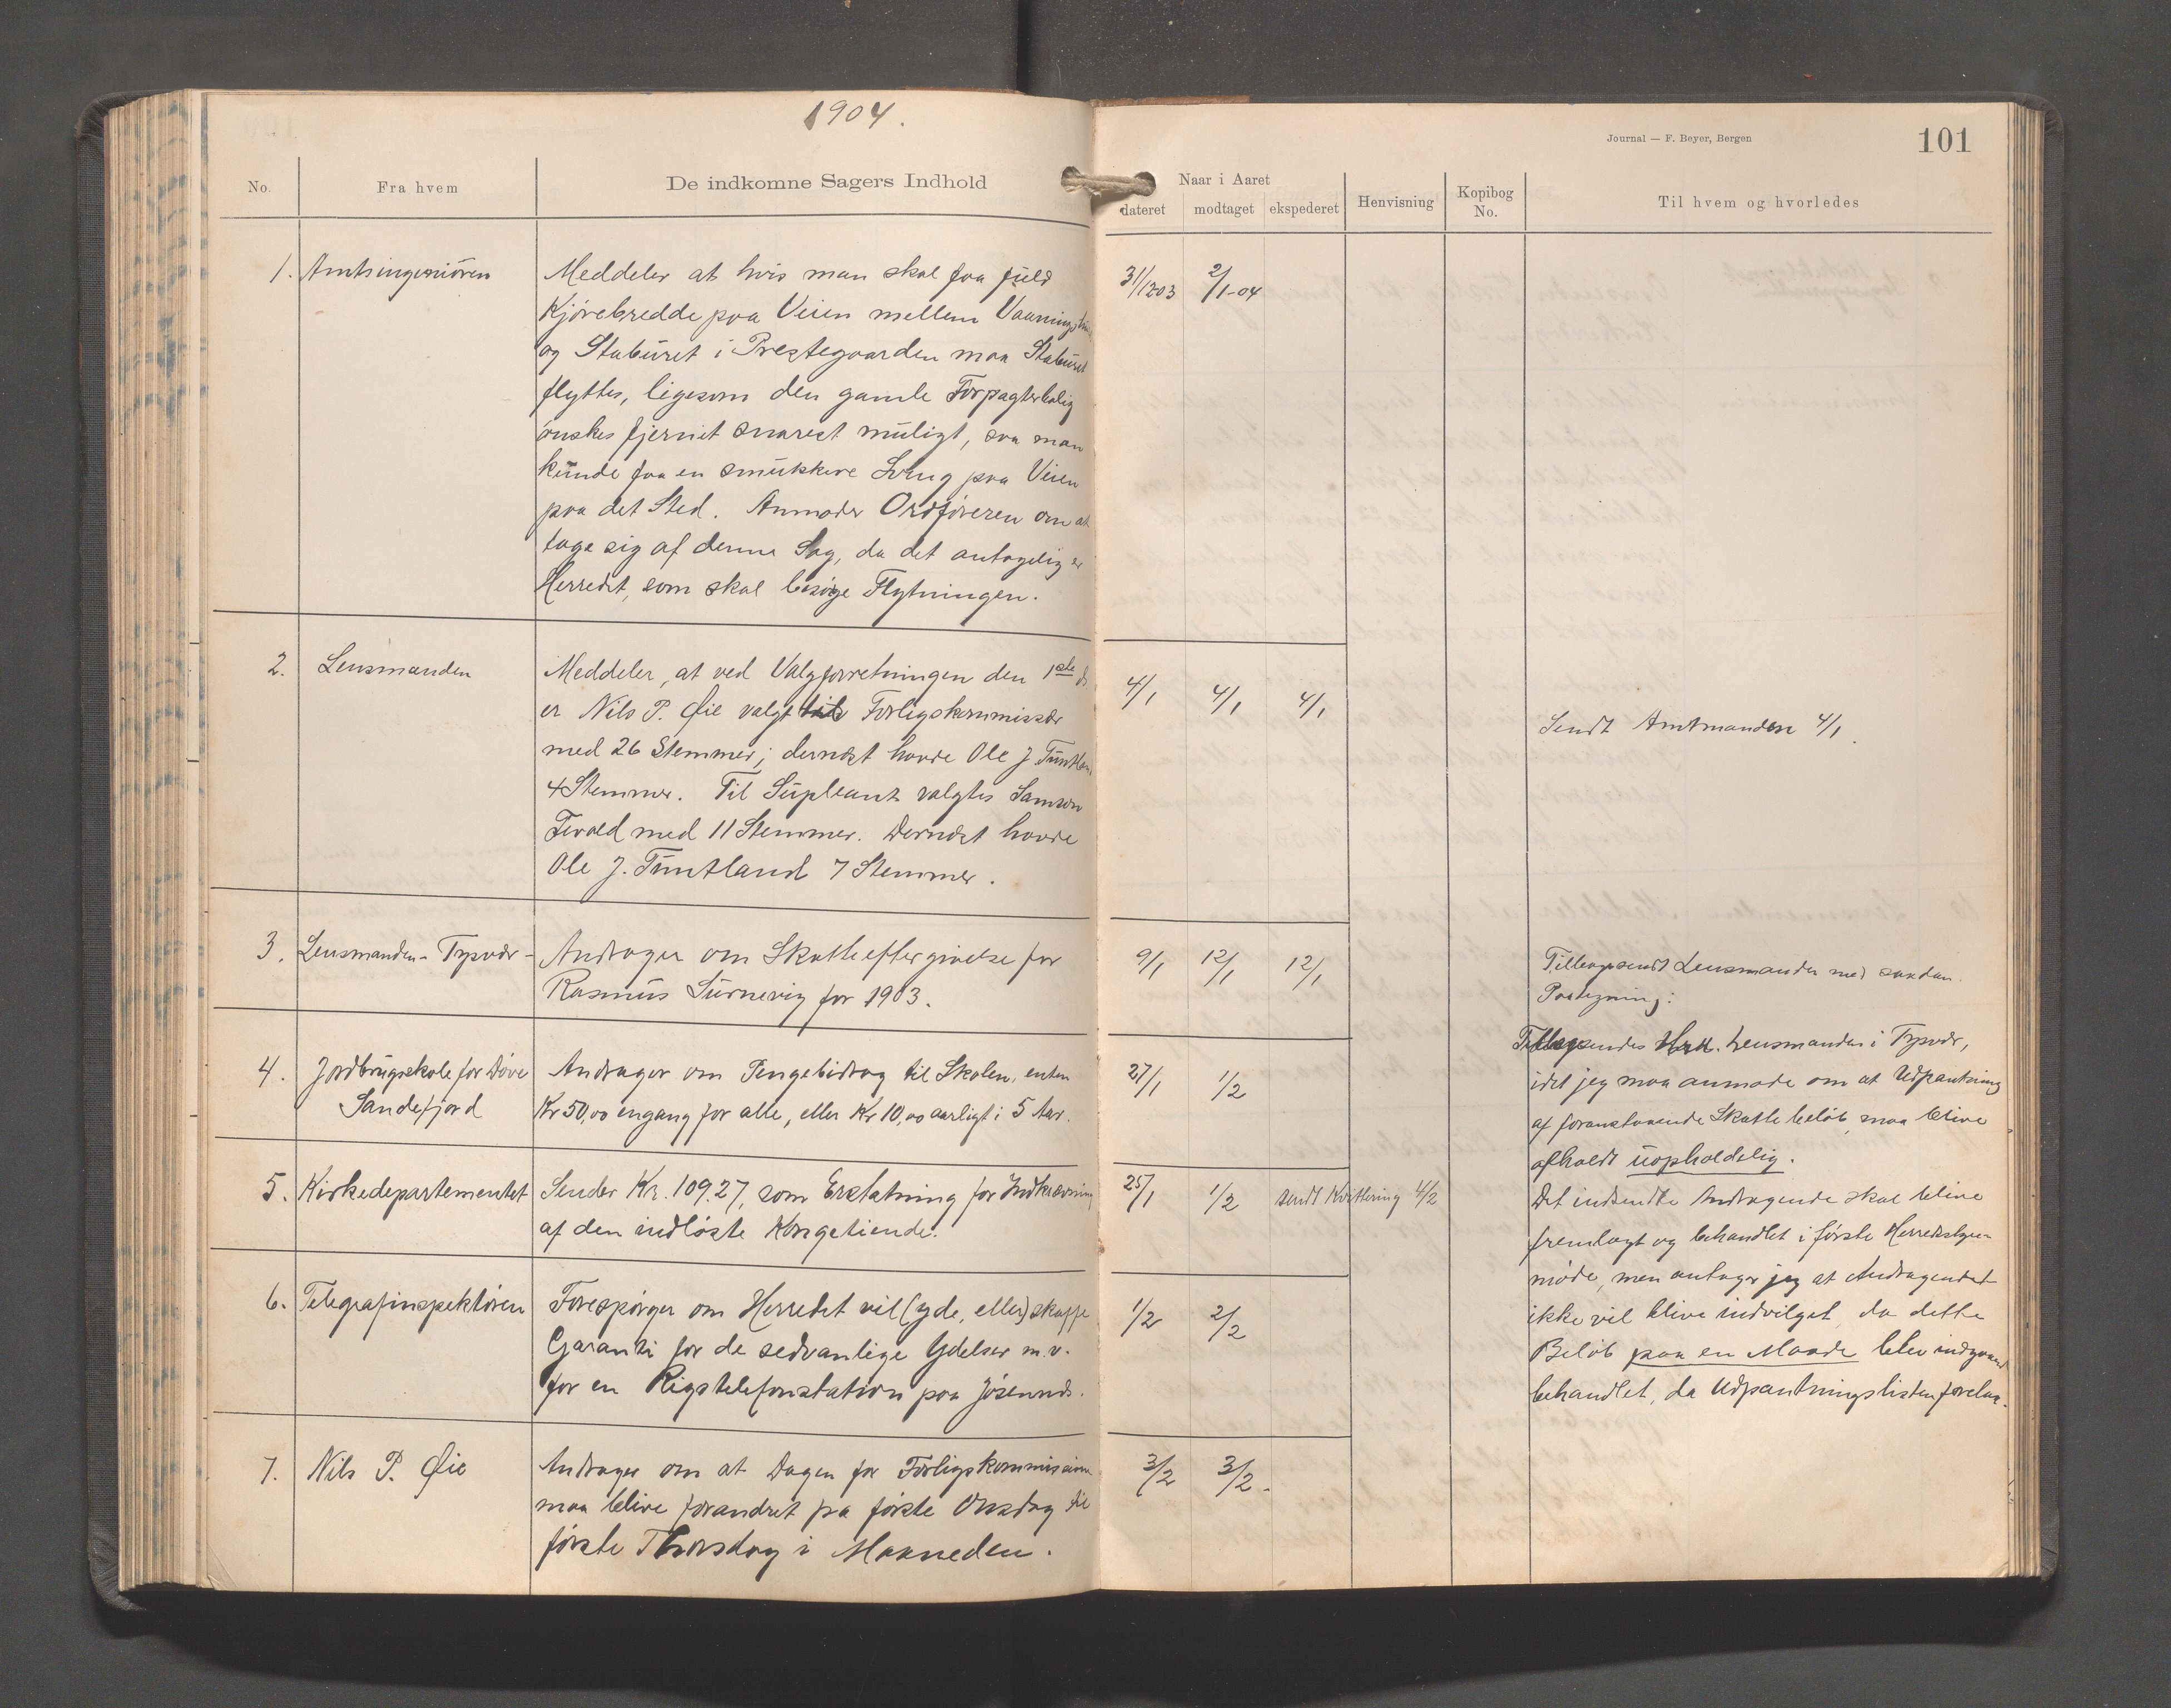 1904.
Journal — F. Beyer, Bergen
101
No.
Fra hvem
De indkomne Sagers Indhold
Naar i Aaret
dateret
modtaget
ekspederet
Henvisning
Kopibog
No.
Til hvem og hvorledes
1. Amtsingeniören
Meddeler at hvis man skal faa fuld
Kjörebredde paa Veien mellem
og Staburet i Prestegaarden maa Staburet
flyttes, ligesom den gamle Forpagterbolig
önskes fjernet snarest muligt, saa man
kunde faa en smukkere Sving paa Veien
paa det Sted. Anmoder Ordföreren om at
tage sig af denne Sag, da det antagelig er
Herredet, som skal besörge Flytningen.
31/12 03 2/1-04
2. Lensmanden
Meddeler, at ved Valgforretningen den 1ste ds
er Nils P. Øie valgt til Forligskommissær
med 26 Stemmer; dernæst havde Ole J. Tuntland
4 Stemmer. Til Supleant valgtes Samson
med 11 Stemmer. Dernæst havde
Ole J. Tuntland 7 Stemmer.
4/1 4/1 4/1
Sendt Amtmanden 4/1.
3. Lensmanden - Tysvær -
Andrager om Skatteeftergivelse for
Rasmus Surnevig for 1903.
9/1 12/1 12/1
Tilbagesendt Lensmanden med saadan
Paategning:
Tilbagesendes Hr. Lensmanden i Tysvær,
idet jeg maa anmode om at Udpantning
af foranstaaende Skattebelöb maa blive
afholdt uopholdelig.
Det indsendte Andragende skal blive
fremlagt og behandlet i förste Herredsstyre-
möde, men antager jeg at Andragendet
ikke vil blive indvilget, da dette
Belöb paa en Maade blev indgaaende
behandlet, da Udpantningslisten forelaa.
4. Jordbrugsskole for Döve
Sandefjord
Andrager om Pengebidrag til Skolen, enten
Kr 50,00 engang for alle, eller Kr 10,00 aarligt i 5 Aar.
27/1 1/2
5. Kirkedepartementet
Sender Kr. 109.27, som Erstatning for Indkrævning
af den indlöste Kongetiende.
25/1 1/2 sendt Kvittering 4/2
6. Telegrafinspektören
Forespörger om Herredet vil (yde, eller) skaffe
Garanti for de sedvanlige Ydelser m.v.
for en Rigstelefonstation paa Jösenund.
1/2 2/2
7. Nils P. Øie
Andrager om at Dagen for Forligskommissionen
maa blive forandret fra förste Onsdag til
förste Thorsdag i Maaneden.
3/2 3/2.